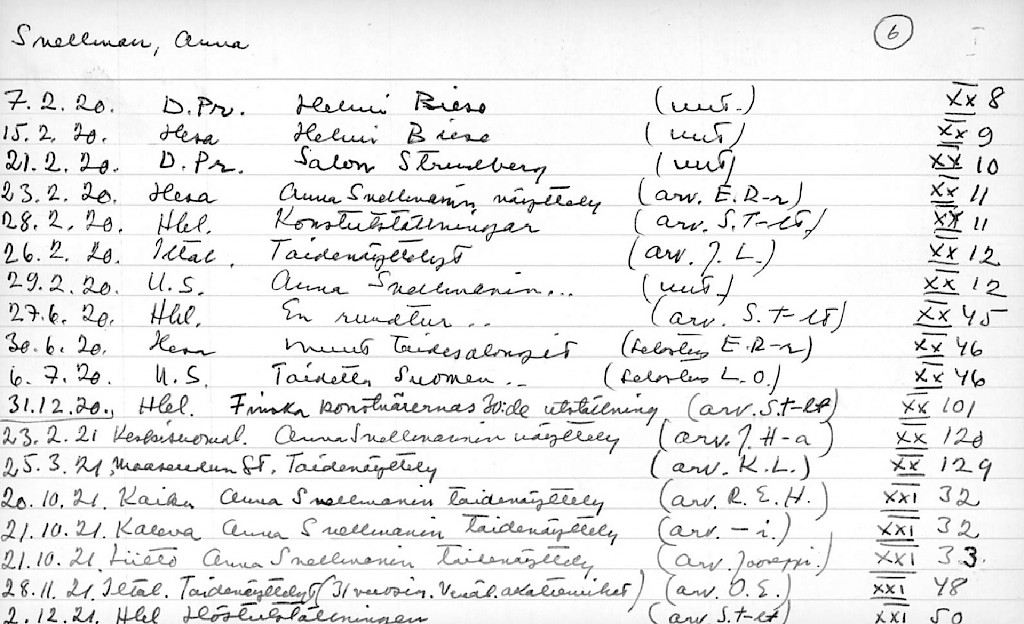 Snellman, Anna 6
7. 2. 20. D. Pr. Helmi Biese (uut.) XX 8
15. 2. 20. Hesa Helmi Biese (uut) XX 9
21. 2. 20. D. Pr. Salon Strindberg (uut) XX 10
23. 2. 20. Hesa Anna Snellmanin näyttely (arv. E. R-r) XX 11
28. 2. 20. Hbl. Konstutställningar (arv. S. T-lt) XX 11
26. 2. 20. Iltal. Taidenäyttelyt (arv. J. L.) XX 12
29. 2. 20. U. S. Anna Snellmanin... (uut.) XX 12
27. 6. 20. Hbl. En rundtur .. (arv. S. T-lt) XX 45
30. 6. 20. Hesa muut taidesalongit (selostus E. R-r) XX 46
6. 7. 20. U. S. Taidetta Suomen .. (selostus L. O.) XX 46
31.12.20., Hbl. Finska konstnärernas 30:de utställning (arv. S. T-lt) XX 101
23. 2. 21 Keskisuomal. Anna Snellmannin näyttely (arv. J. H-a) XX 120
25. 3. 21, Maaseudun St. Taidenäyttely (arv. K. L.) XX 129
20. 10. 21. Kaiku Anna Snellmanin taidenäyttely (arv. R. E. H.) XXI 32
21. 10. 21. Kaleva Anna Snellmanin taidenäyttely (arv. - i.) XXI 32
21. 10. 21. Liitto Anna Snellmanin taidenäyttely (arv. Jooseppi.) XXI 33.
28. 11. 21. Iltal. Taidenäyttelyt (31 vuosin. Venäl. akateemikot) (arv. O. E.) XXI 48
2. 12. 21. Hbl Höstutställningen (arv S. T-lt) XXI 50